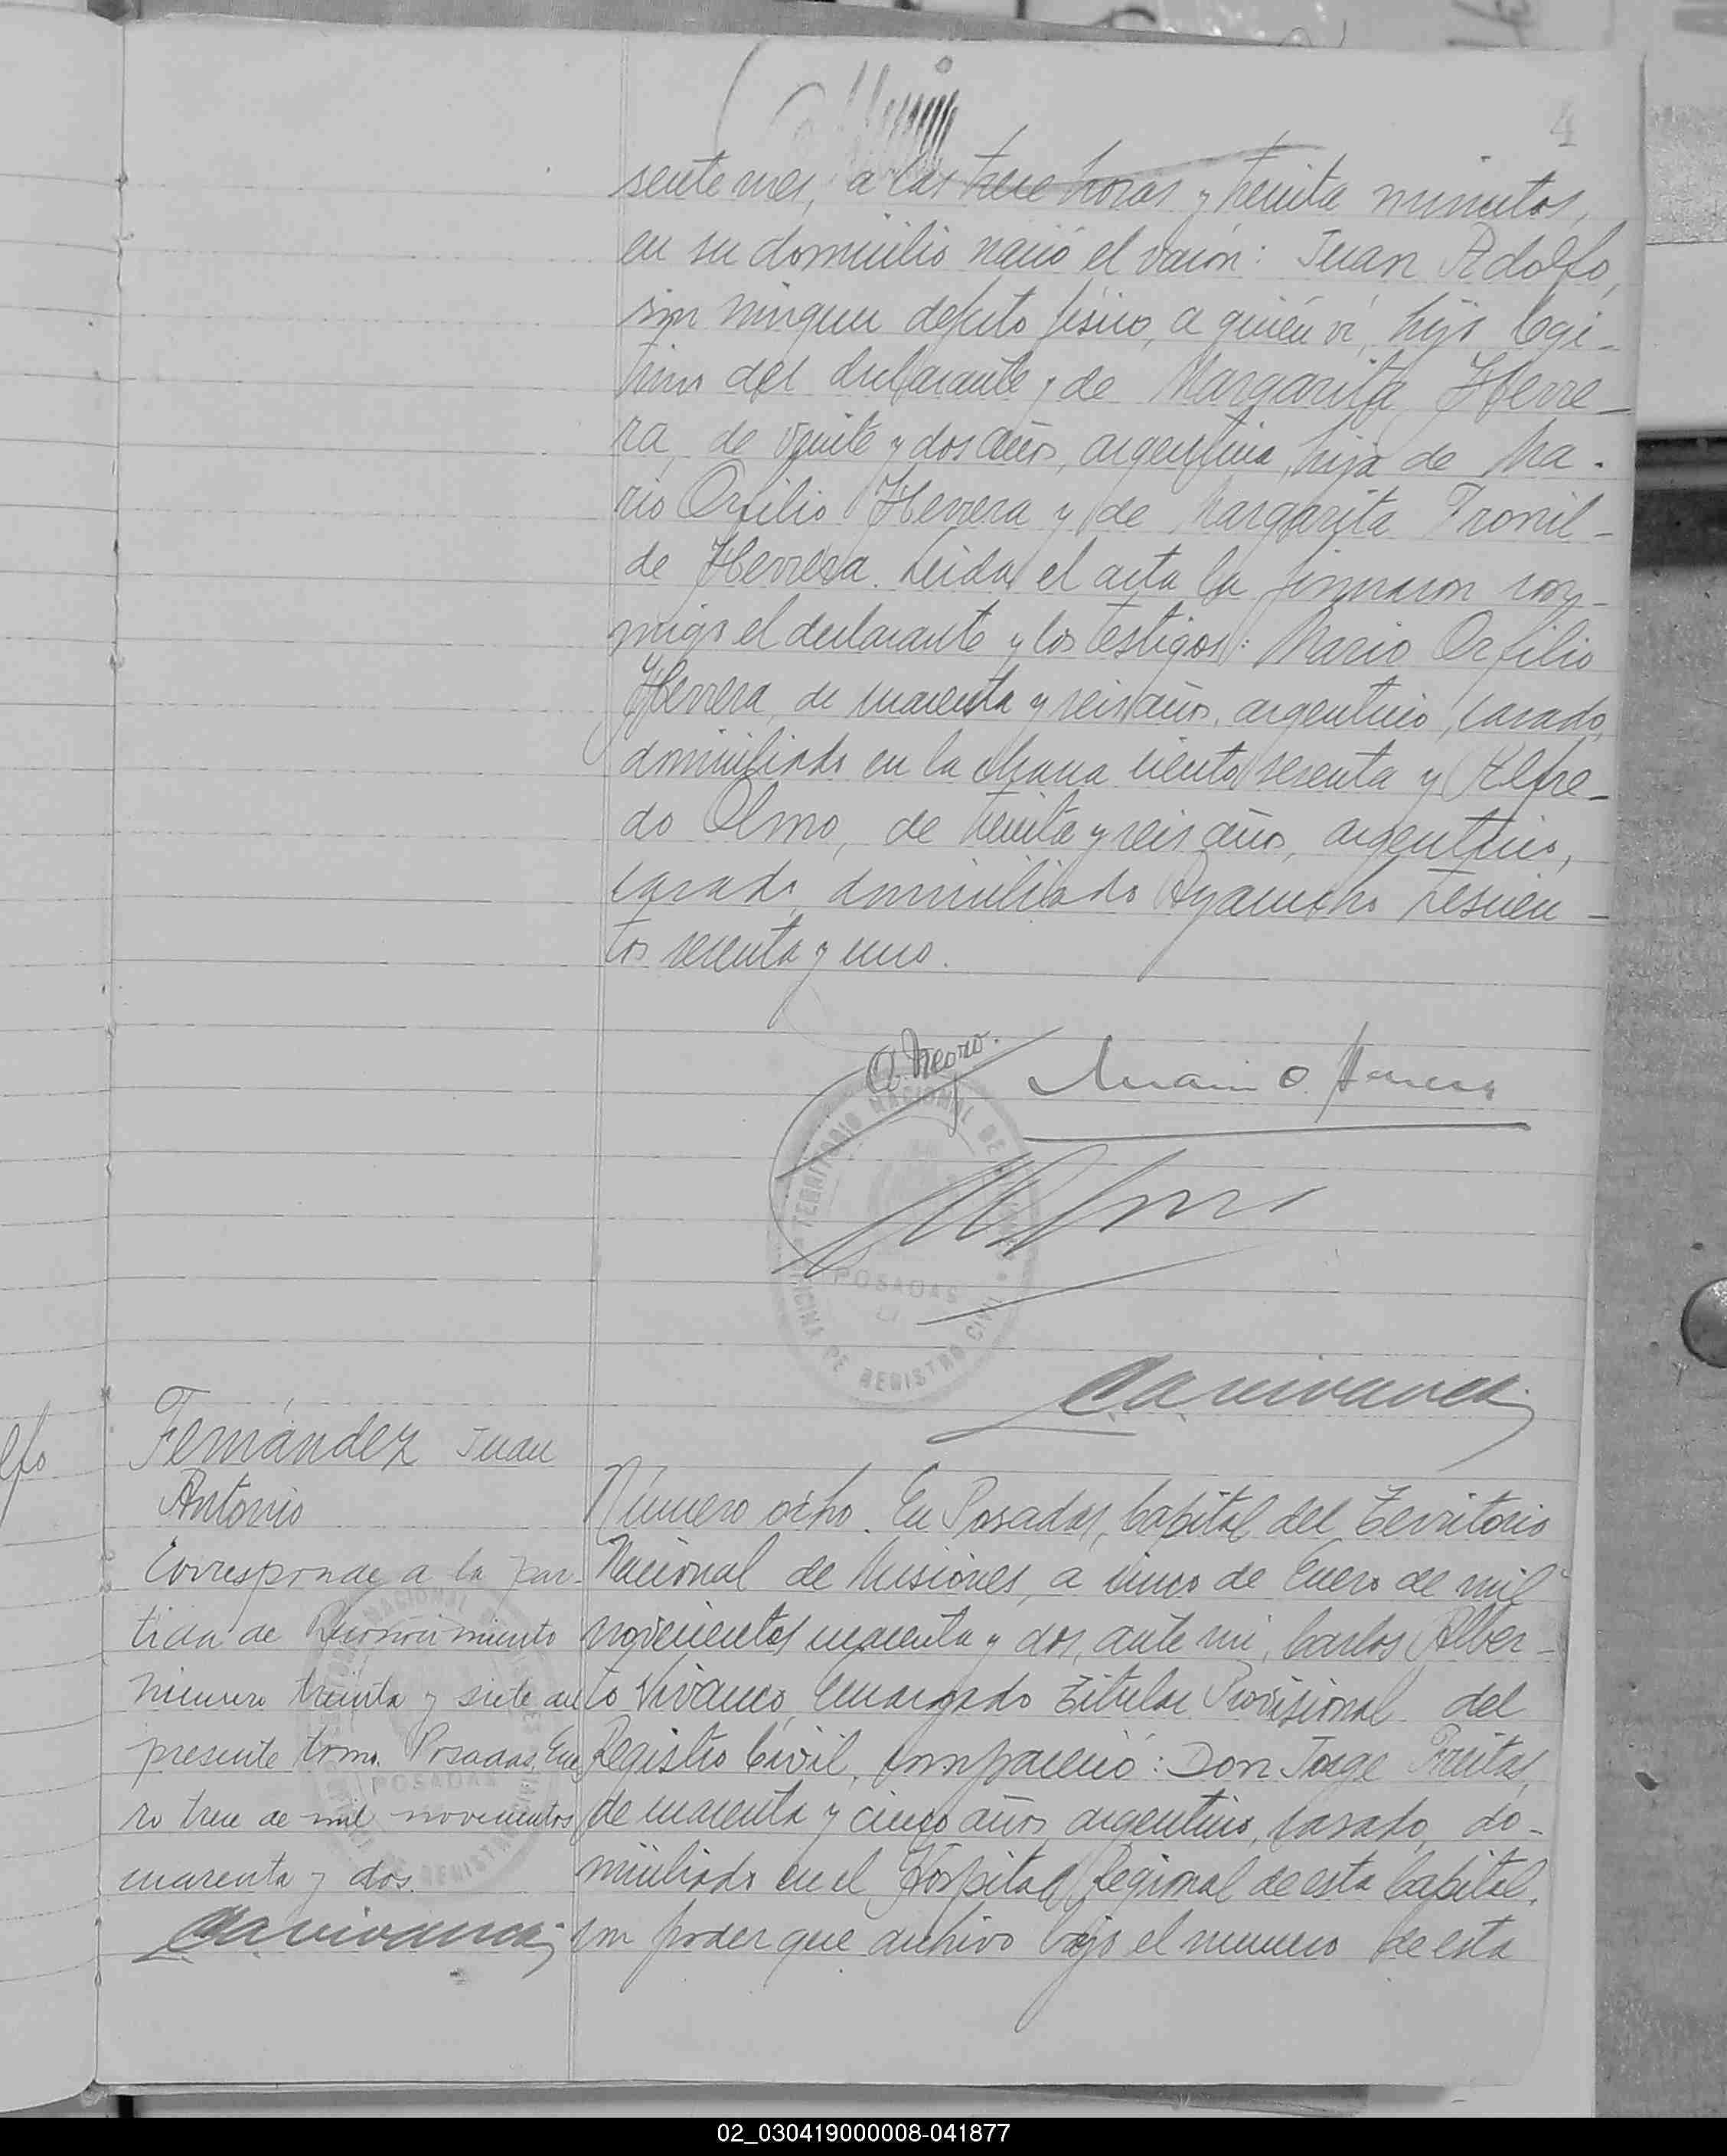 4
sente mes, a las trece horas y treinta minutos,
en su domicilio nació el varón: Juan Adolfo,
sin ningun defecto físico, a quién ví, hijo legi-
timo del declarante y de Margarita Herre-
ra, de veinte y dos años, argentina, hija de Ma-
rio Orfilio Herrera y de Margarita Tronil-
de Herrera. Leida el acta la firmaron con-
migo el declarante y los testigos: Mario Orfilio
Herrera, de cuarenta y seis años, argentino, casado,
domiciliado en la chacra ciento sesenta y Alfre-
do Olmo, de treinta y seis años, argentino,
casado, domiciliado Ayacucho trescien-
tos sesenta y uno.
Mario O. Herrera
OFICINA DE REGISTRO CIVIL
TERRITORIO NACIONAL DE MISIONES
POSADAS
CAVivanco
Fernández Juan
Antonio
Corresponde a la par-
tida de Reconocimiento
número treinta y siete del
presente tomo. Posadas, Ene
ro trece de mil novecientos
cuarenta y dos.
CAVivanco
Número ocho. En Posadas, Capital del Territorio
Nacional de Misiones, a cinco de Enero de mil
novecientos cuarenta y dos, ante mi, Carlos Alber-
to Vivanco, Encargado Titular Provisional del
Registro Civil, compareció: Don Jorge Freitas,
de cuarenta y cinco años, argentino, casado, do-
miciliado en el Hospital Regional de esta Capital,
con poder que archivo bajo el numero de esta
elfo
02_030419000008-041877